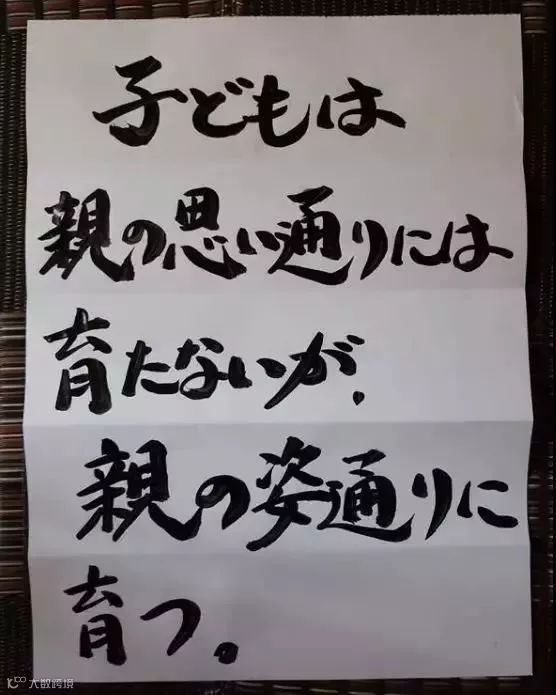 子どもは
親の思い通りには
育たないが、
親の姿通りに
育つ。
大数跨境